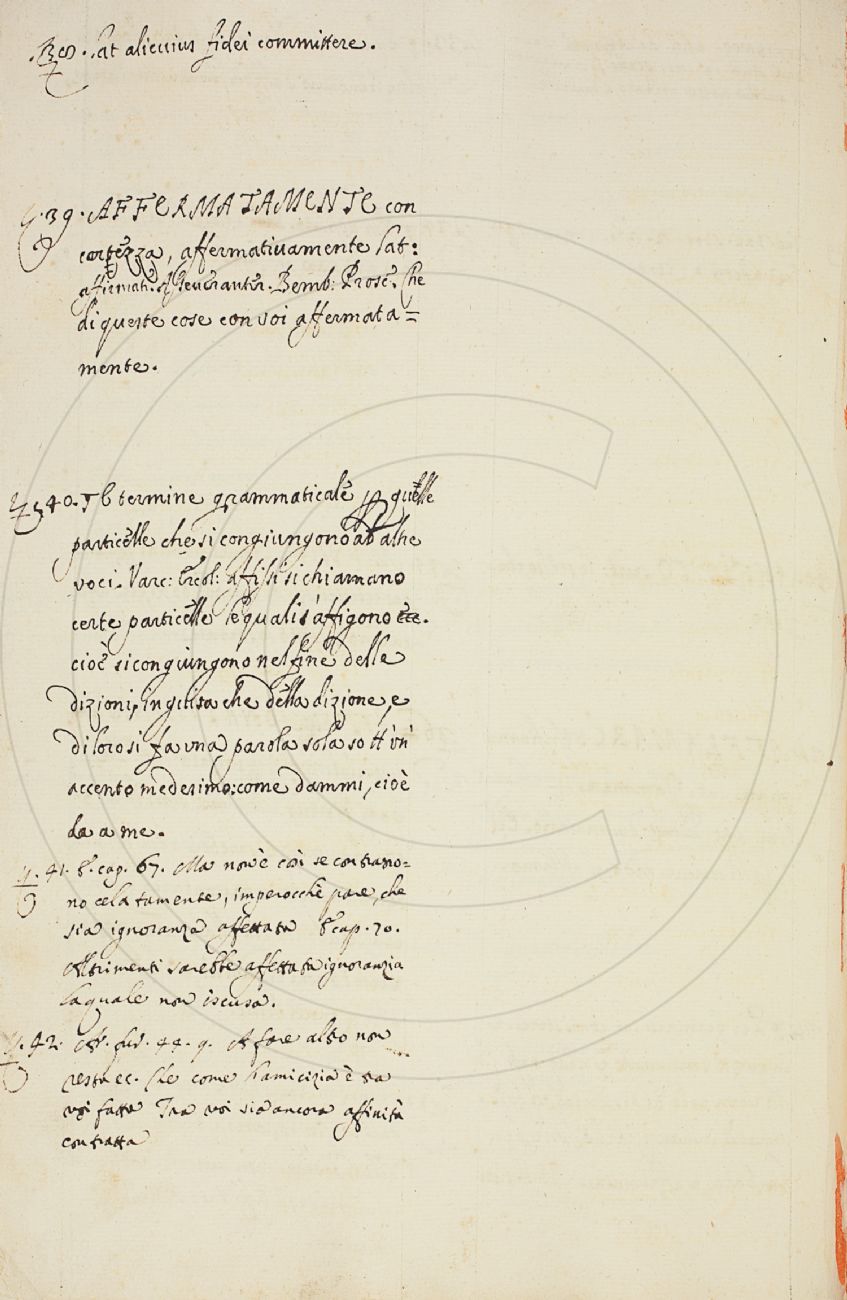 38. Lat alicuius fidei committere.
39. AFFERMATAMENTE con
certezza, affermativamente Lat:
affirmatè. asseveranter. Bemb: Prose. Che
di queste cose con voi affermata=
mente.
40. Il termine grammaticale p quelle
particelle che si congiungono ad altre
voci. Varc: Ercol: affissi si chiamano
certe particelle le quali s'affigono etc.
cioè si congiungono nel fine delle
dizioni, in guisa che della dizione, e
di loro si fa una parola sola sott' un'
accento medesimo: come dammi, cioè
da a me.
41. E. cap. 67. Ma non è così se contrano=
no celatamente, imperocchè pare, che
sia ignoranza affettata E cap. 70.
Altrimenti sarebbe affettata ignoranzia
la quale non iscusa.
42. Ar. fur. 44. 9. A fare altro non
resta ec. Che come l'amicizia è tra
voi fatta Tra voi sia ancora affinità
contratta